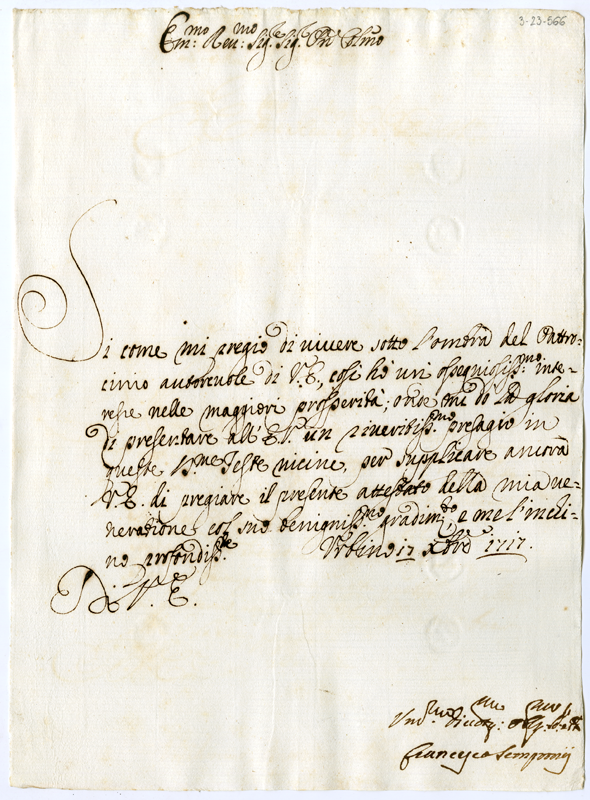 3-23-566
Em:mo Reu:mo Sig.r Sig.r Pñe Colmo
Si come mi pregio di viuere sotto l'ombra del Patro-
cinio autoreuole di V.E., così hò un ossequiosiss:mo inte-
resse nelle maggiori prosperità; onde mi dò la gloria
di presentare all' E.V. un riueritiss:mo presagio in
queste S.me Feste uicine, per supplicare ancora
V.E. di pregiare il presente attestato della mia ue-
nerazione col suo benigniss:mo gradim:to, e me l'incli-
no profondiss:te Vrbino 17 Xbre 1717.
Di V. E.
Vm:mo Diuot:mo Obl:mo
Francesco Sempronij